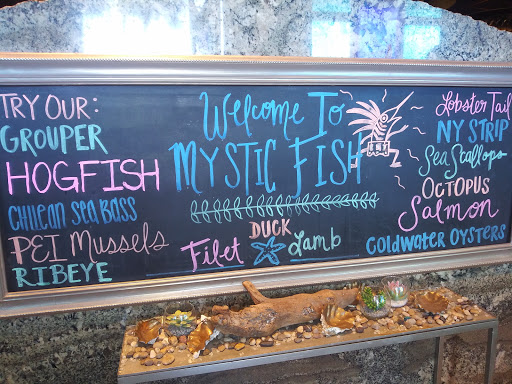 TRY OUR:
GROUPER
HOGFISH
CHILEAN SEA BASS
PEI Mussels
RIBEYE
Welcome To
MYSTIC FISH
DUCK
Filet Lamb
Lobster Tail
NY STRIP
Sea Scallops
OCTOPUS
Salmon
COLDWATER OYSTERS